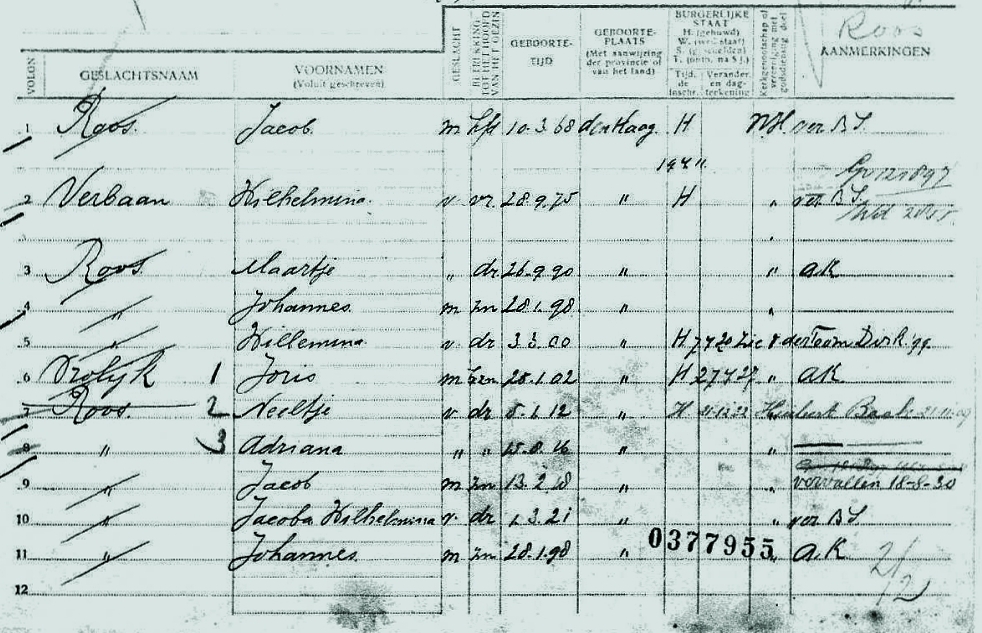 Roos
VOLGN GESLACHTSNAAM VOORNAMEN (Voluit geschreven) GESLACHT BETREKKING TOT HET HOOFD VAN HET GEZIN GEBOORTE-TIJD GEBOORTE-PLAATS (Met aanwijzing der provincie of van het land) BURGERLIJKE STAAT H. (gehuwd) W. (wed. staat) S. (gescheiden) T. (ontb. na S.) Tijd. de inschr. Verander. en dag-teekening Kerkgenootschap of vereeniging met godsdienstig doel AANMERKINGEN
1 Roos. Jacob. m hfd 10.3.68 den Haag H NH ver BS
2 Verbaan Wilhelmina. v vr. 28.9.75 " H " ver BS
3 Roos. Maartje " dr 26.9.90 " " a.K
4 " Johannes. m zn 28.1.98 " "
5 " Willemina. v. dr 3.3.00 " H 7 7 20 Dirk '99
6 Vrolijk 1 Joris m 25.1.02 " H 27 4 27 a.K
7 Roos. 2 Neeltje v dr 5.1.12 " H
8 " 3 Adriana " " 15.8.16 " "
9 " Jacob m zn 13.2.18 " " vervallen 18-8-30
10 " Jacoba Wilhelmina v. dr 1.3.21 " " ver BS
11 " Johannes. m zn 28.1.98 " 0377955 " a.K
12